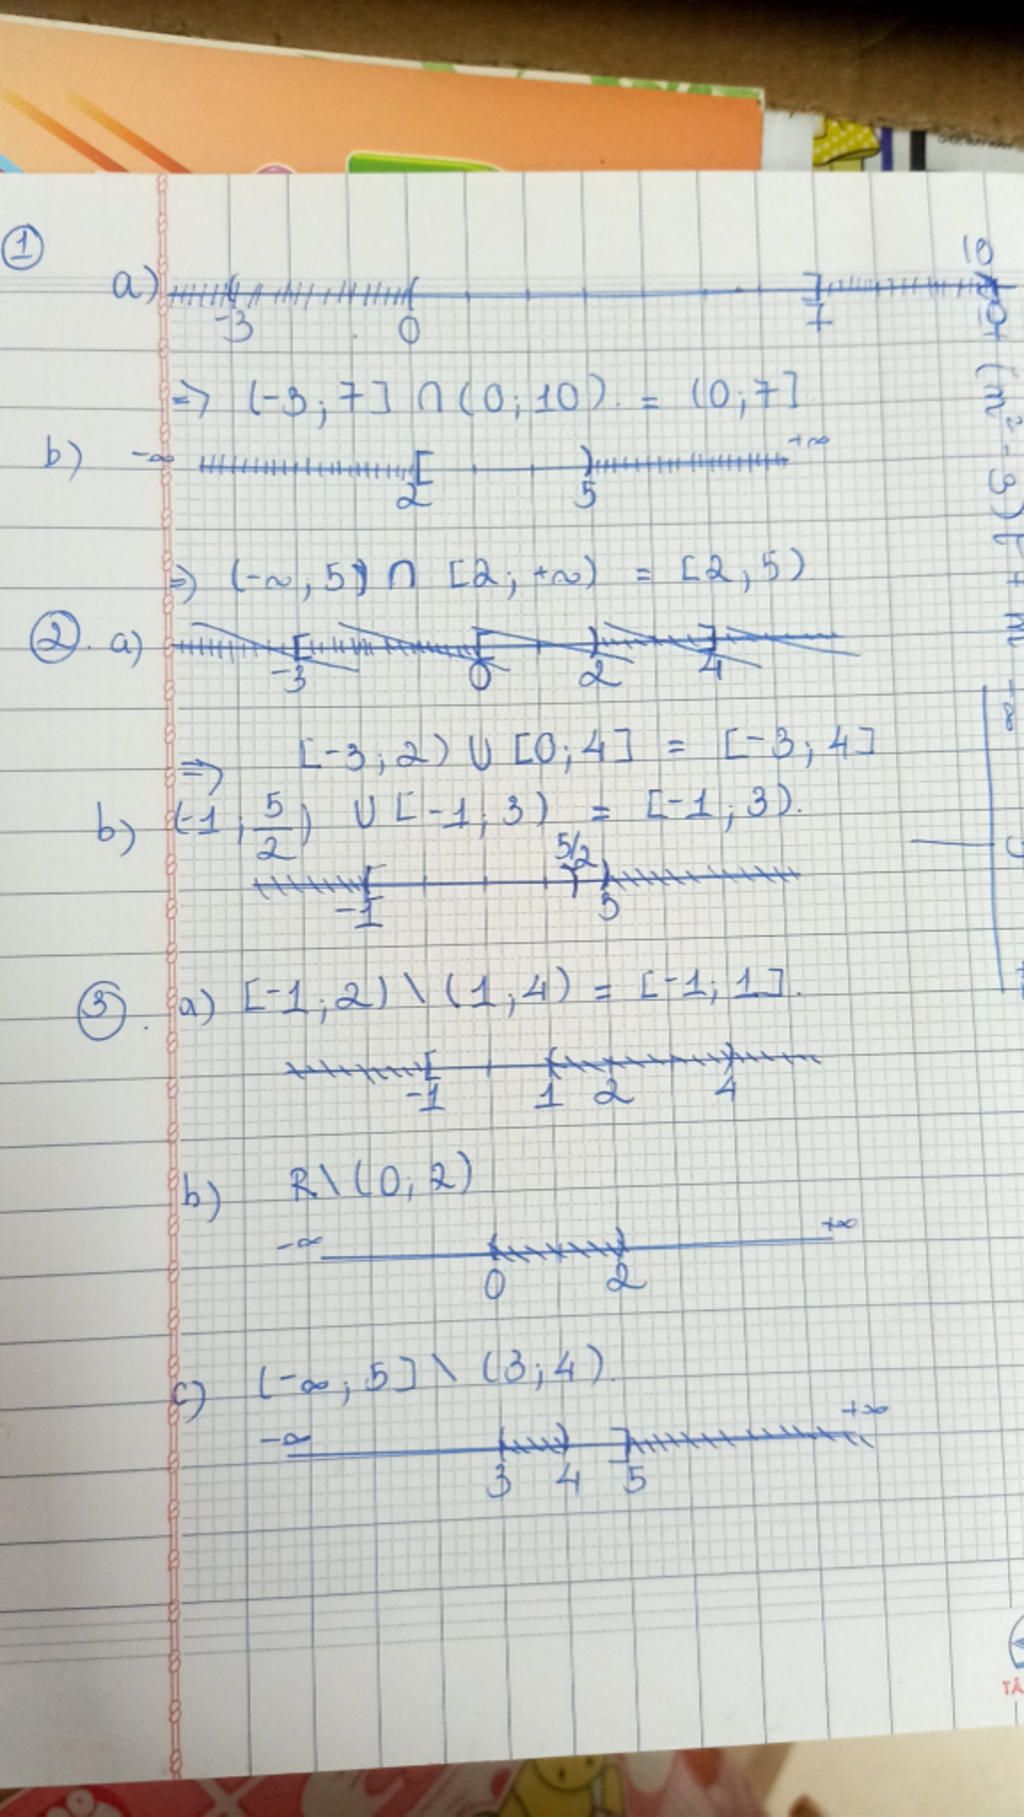 1
a) -3 0 7 10
=> (-3; 7] ∩ (0; 10) = (0; 7]
b) -∞ 2 5 +∞
=> (-∞; 5) ∩ [2; +∞) = [2; 5)
2. a) -3 0 2 4
=> [-3; 2) ∪ [0; 4] = [-3; 4]
b) (-1; 5/2) ∪ [-1; 3) = [-1; 3).
-1 5/2 3
3. a) [-1; 2) \ (1; 4) = [-1; 1].
-1 1 2 4
b) R \ (0; 2)
-∞ 0 2 +∞
c) (-∞; 5] \ (3; 4).
-∞ 3 4 5 +∞